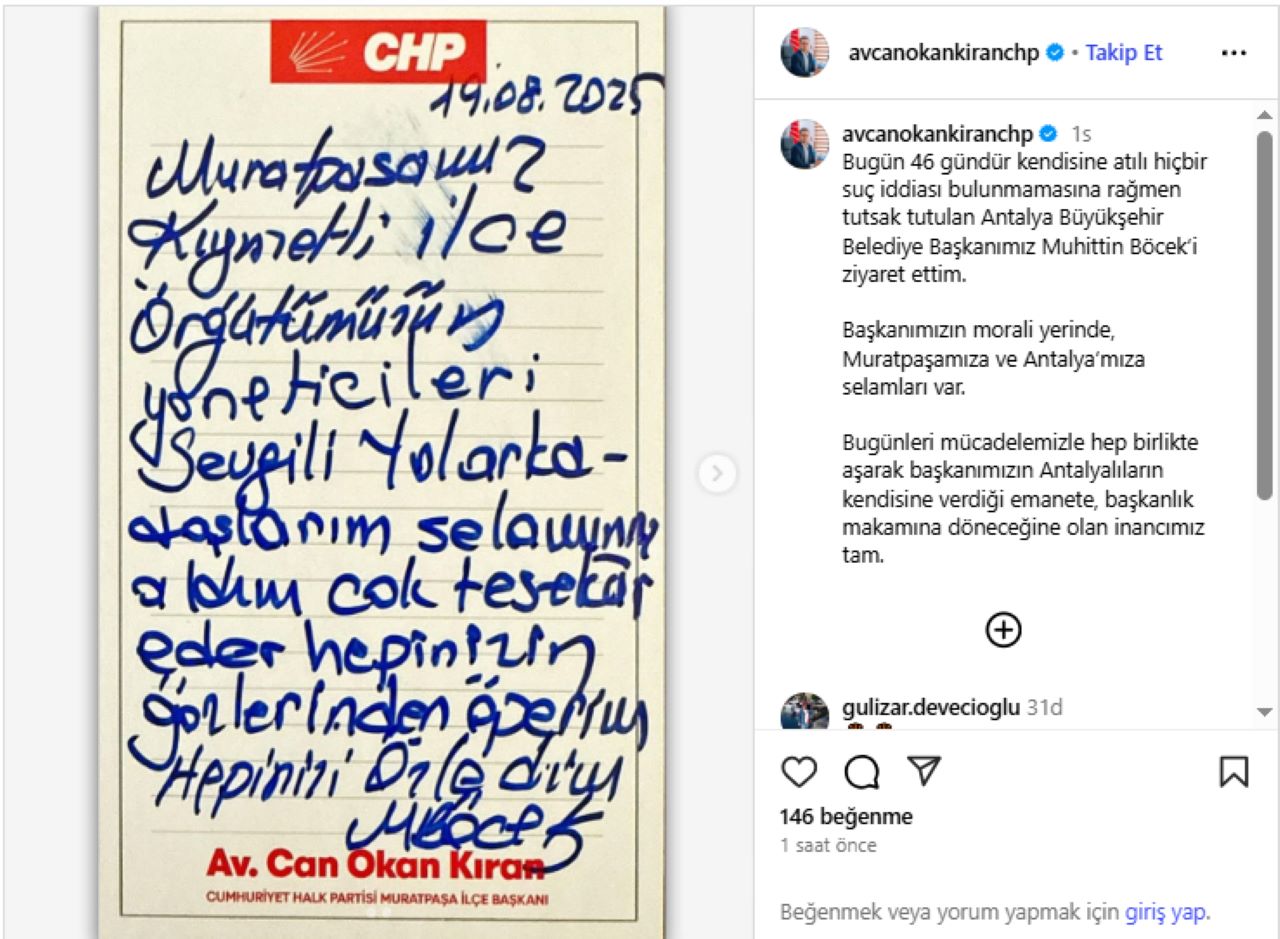 CHP
19.08.2025
Muratpaşamız
Kıymetli ilçe
Örgütümüzün
yöneticileri
Sevgili Yolarka-
daşlarım selamınızı
aldım çok teşekkür
eder hepinizin
gözlerinden öperim
Hepinizi Özledim
MBöcek
Av. Can Okan Kıran
CUMHURİYET HALK PARTİSİ MURATPAŞA İLÇE BAŞKANI
avcanokankiranchp • Takip Et
avcanokankiranchp 1s
Bugün 46 gündür kendisine atılı hiçbir
suç iddiası bulunmamasına rağmen
tutsak tutulan Antalya Büyükşehir
Belediye Başkanımız Muhittin Böcek'i
ziyaret ettim.
Başkanımızın morali yerinde,
Muratpaşamıza ve Antalya'mıza
selamları var.
Bugünleri mücadelemizle hep birlikte
aşarak başkanımızın Antalyalıların
kendisine verdiği emanete, başkanlık
makamına döneceğine olan inancımız
tam.
gulizar.devecioglu 31d
146 beğenme
1 saat önce
Beğenmek veya yorum yapmak için giriş yap.